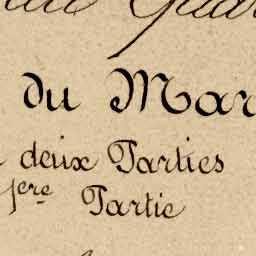 du Mar
deux Parties
1ere Partie